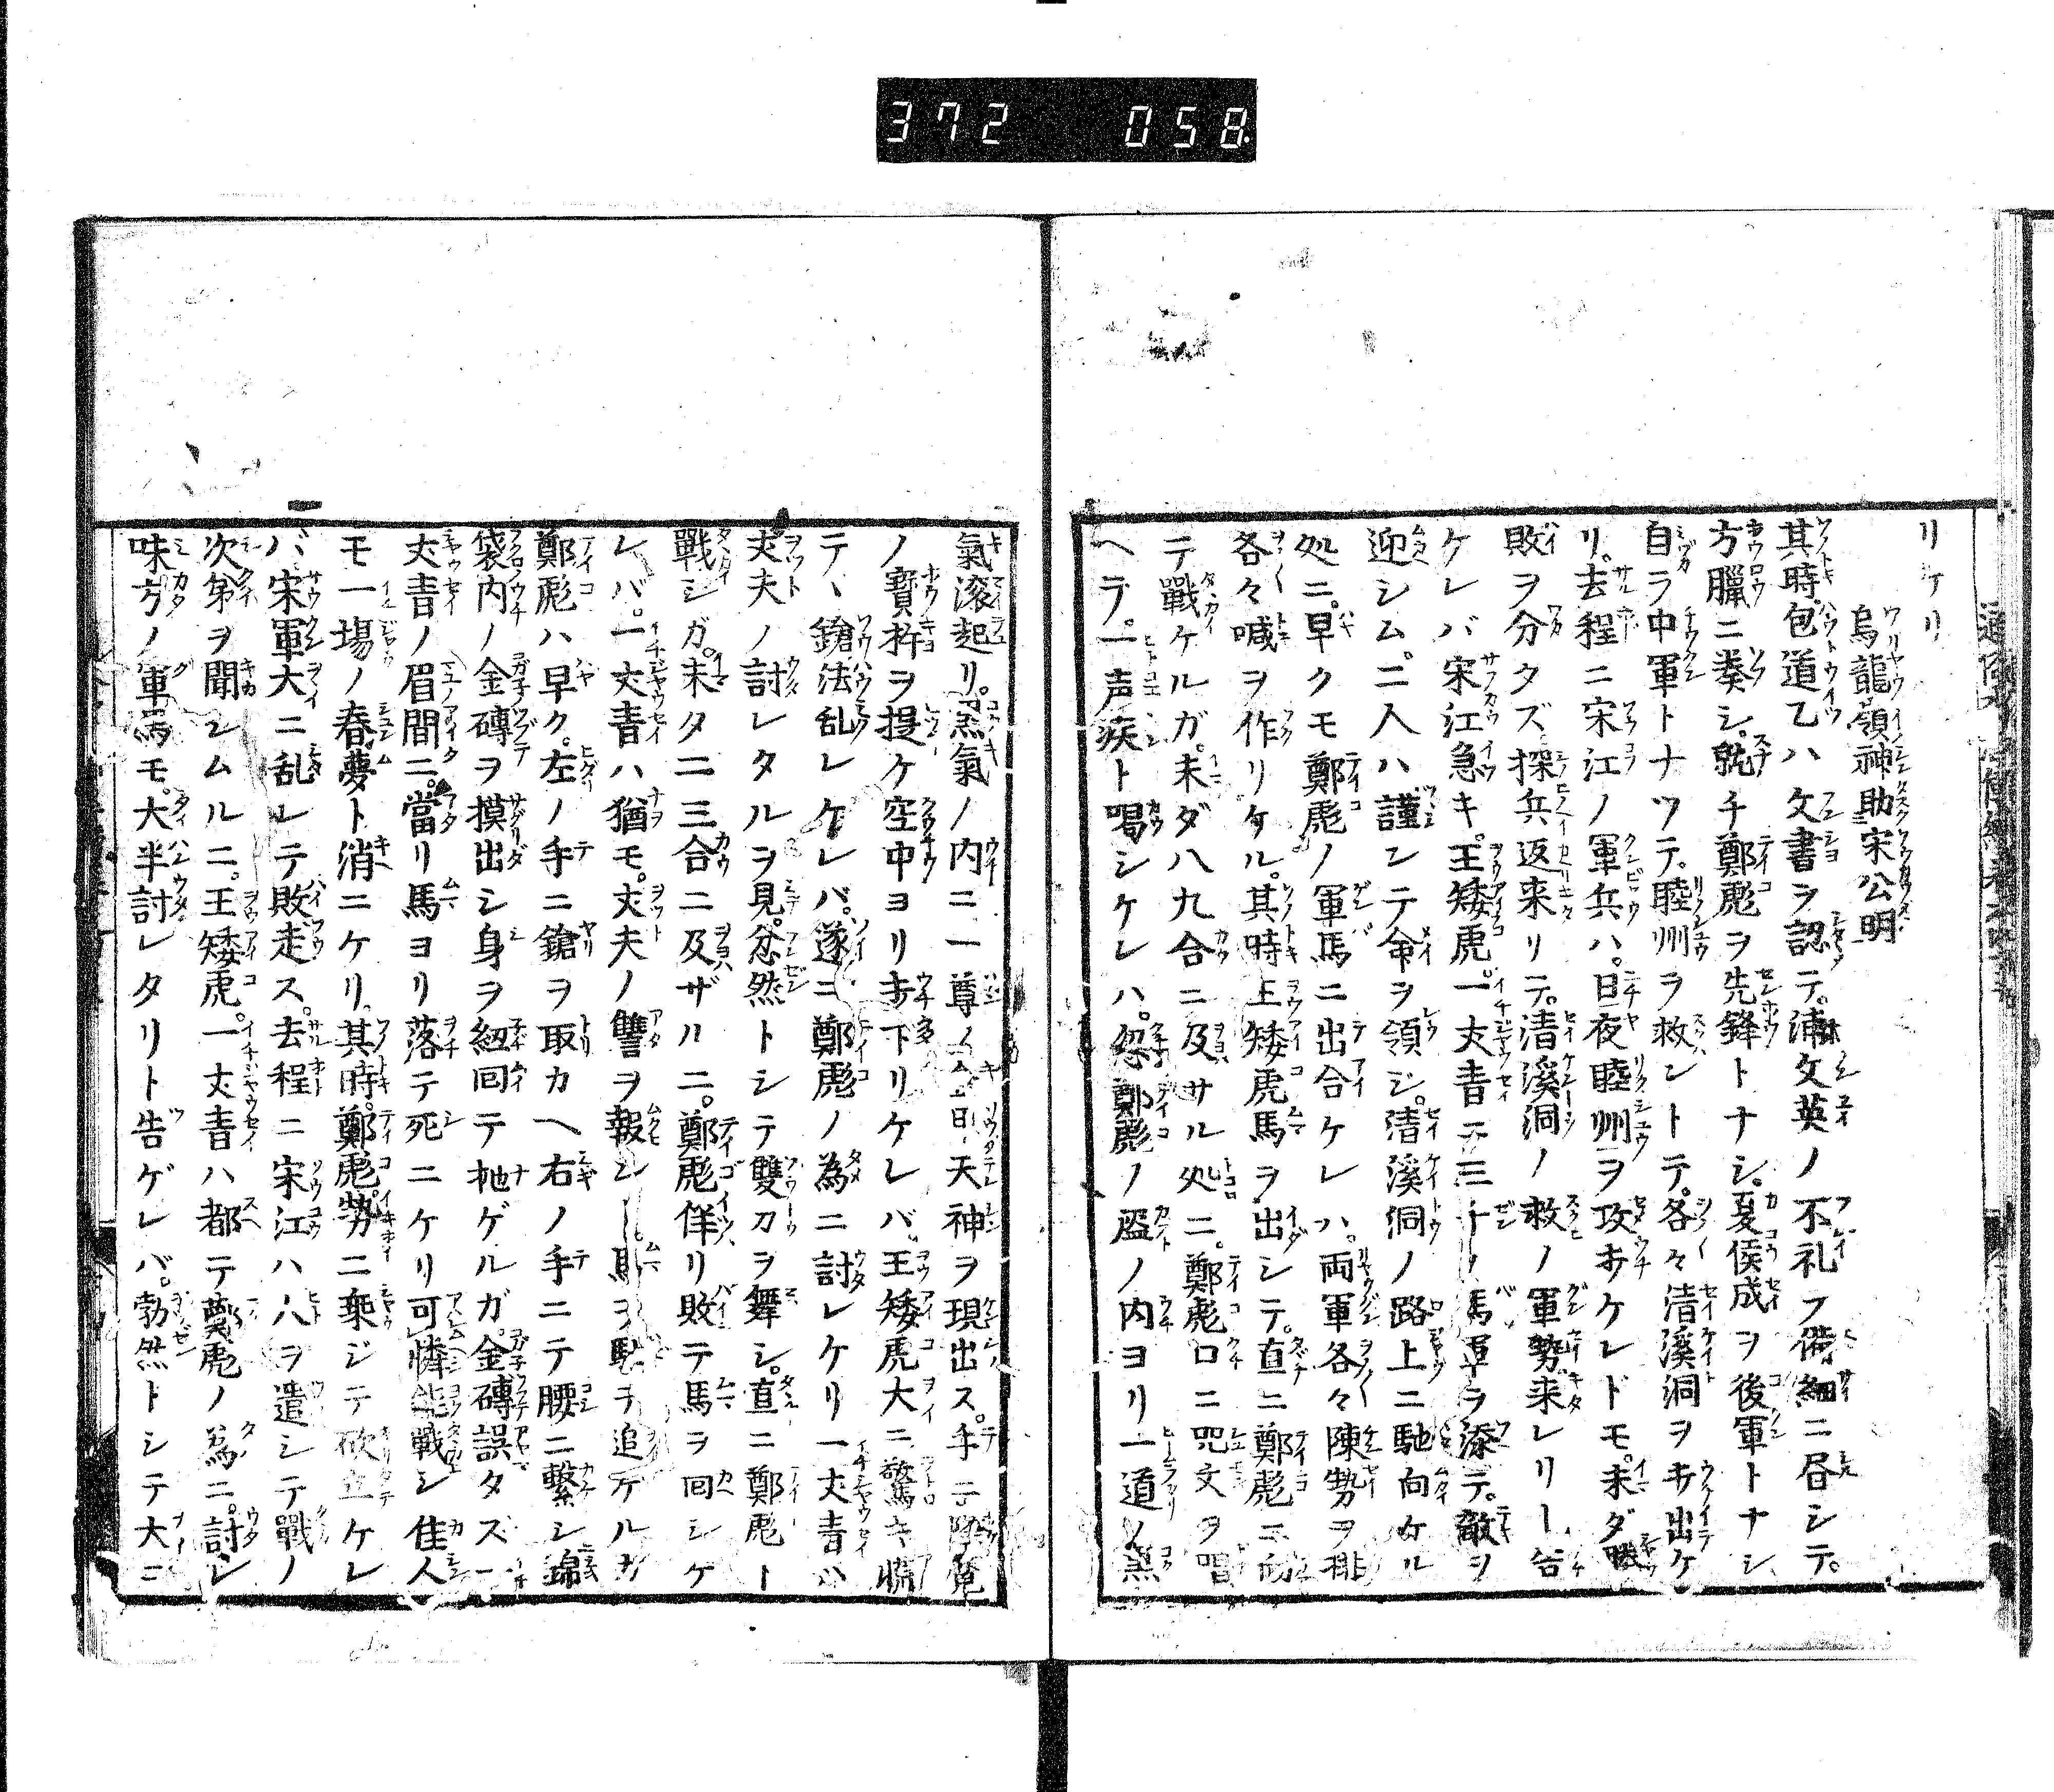 372 058
リケリ
烏龍嶺神助宋公明
其時包道乙ハ文書ヲ認テ。浦文英ノ不礼ヲ備細ニ啓シテ。
方臘ニ奏シ。就チ鄭彪ヲ先鋒トナシ。夏侯成ヲ後軍トナシ
自ラ中軍トナツテ。睦州ヲ救ントテ。各々清溪洞ヲ打出ケ
リ。去程ニ宋江ノ軍兵ハ。日夜睦州ヲ攻打ケレドモ。未ダ勝
敗ヲ分タズ探兵返来リテ。清溪洞ノ救ノ軍勢来レリト告
ケレバ宋江急キ。王矮虎。一丈青ニ三千ノ馬軍ヲ添テ。敵ヲ
迎シム。二人ハ謹ンテ命ヲ領シ。清溪洞ノ路上ニ馳向ケル
処ニ。早クモ鄭彪ノ軍馬ニ出合ケレハ。両軍各々陳勢ヲ排
各々喊ヲ作リケル。其時王矮虎馬ヲ出シテ。直ニ鄭彪ニ向
テ戰ケルガ。未ダ八九合ニ及サル処ニ。鄭彪口ニ咒文ヲ唱
ヘテ。一声疾ト喝シケレハ。忽鄭彪ノ盔ノ内ヨリ一道ノ黒
氣滚起リ。黒氣ノ内ニ一尊ノ金甲天神ヲ現出ス。手ニ降魔
ノ寶杵ヲ提ケ空中ヨリ打下リケレバ。王矮虎大ニ驚キ慌
テヽ鎗法乱レケレバ。遂ニ鄭彪ノ為ニ討レケリ一丈青ハ
丈夫ノ討レタルヲ見。忿然トシテ雙刀ヲ舞シ。直ニ鄭彪ト
戰シガ。未タ二三合ニ及ザルニ。鄭彪佯リ敗テ馬ヲ回シケ
レバ。一丈青ハ猶モ。丈夫ノ讐ヲ報ント馬ヲ馳テ追ケルガ
鄭彪ハ早ク。左ノ手ニ鎗ヲ取カヘ右ノ手ニテ腰ニ繋シ錦
袋内ノ金磚ヲ摸出シ身ヲ紐回テ抛ゲルガ。金磚誤タズ一
丈青ノ眉間ニ。當リ馬ヨリ落テ死ニケリ可憐能戰シ佳人
モ一場ノ春夢ト消ニケリ。其時。鄭彪勢ニ乗ジテ砍立ケレ
バ宋軍大ニ乱レテ敗走ス。去程ニ宋江ハ人ヲ遣シテ戰ノ
次第ヲ聞シムルニ。王矮虎。一丈青ハ都テ鄭彪ノ為ニ。討レ
味方ノ軍馬モ。大半討レタリト告ゲレバ。勃然トシテ大ニ